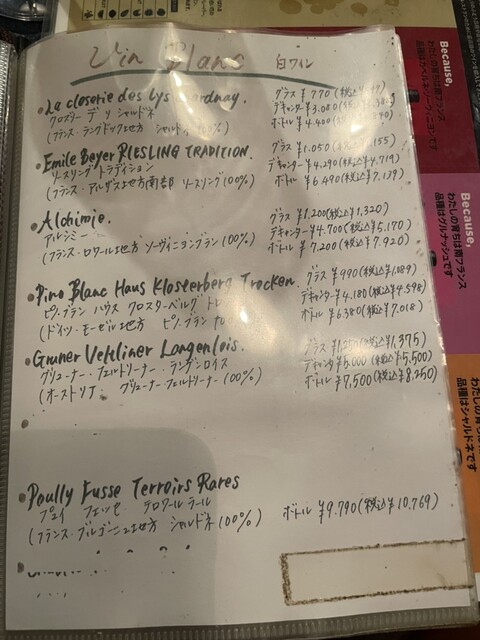 Vin Blanc 白ワイン
La closerie des Lys
クロズリー デ リ シャルドネ
(フランス・ラングドック地方 シャルドネ 100%)
グラス ¥770(税込
デキャンター ¥3.080
ボトル ¥4.400
Emile Beyer RIESLING TRADITION.
リースリング トラディション
(フランス・アルザス地方南部 リースリング 100%)
グラス ¥1.050
デキャンター ¥4.290(税込¥4.719)
ボトル ¥6.490(税込¥7.139)
Alchimie.
アルシミー
(フランス・ロワール地方 ソーヴィニヨンブラン 100%)
グラス ¥1.200(税込¥1.320)
デキャンター ¥4.700(税込¥5.170)
ボトル ¥7.200(税込¥7.920)
Pino Blanc Haus Klosterberg Trocken
ピノ・ブラン ハウス クロスターベルグ
(ドイツ・モーゼル地方 ピノ・ブラン
グラス ¥990(税込¥1.089)
デキャンター ¥4.180(税込¥4.598)
ボトル ¥6.380(税込¥7.018)
Gruner Veltliner Langenlois.
グリューナー・フェルトリーナー・ランゲンロイス
(オーストリア. グリューナーフェルトリーナー 100%)
グラス (税込¥1.375)
デキャンタ ¥5,000(税込¥5,500)
ボトル ¥7,500(税込¥8,250)
Poully Fusse Terroirs Rares
プェイ フュッセ テロワール ラール
(フランス・ブルゴーニュ地方 シャルドネ 100%)
ボトル ¥9.790(税込¥10.769)
Because,
わたしの育ちは南フランス
品種はカベルネ・ソーヴィニヨンです
Because,
わたしの育ちは南フランス
品種はグルナッシュです
品種はシャルドネです